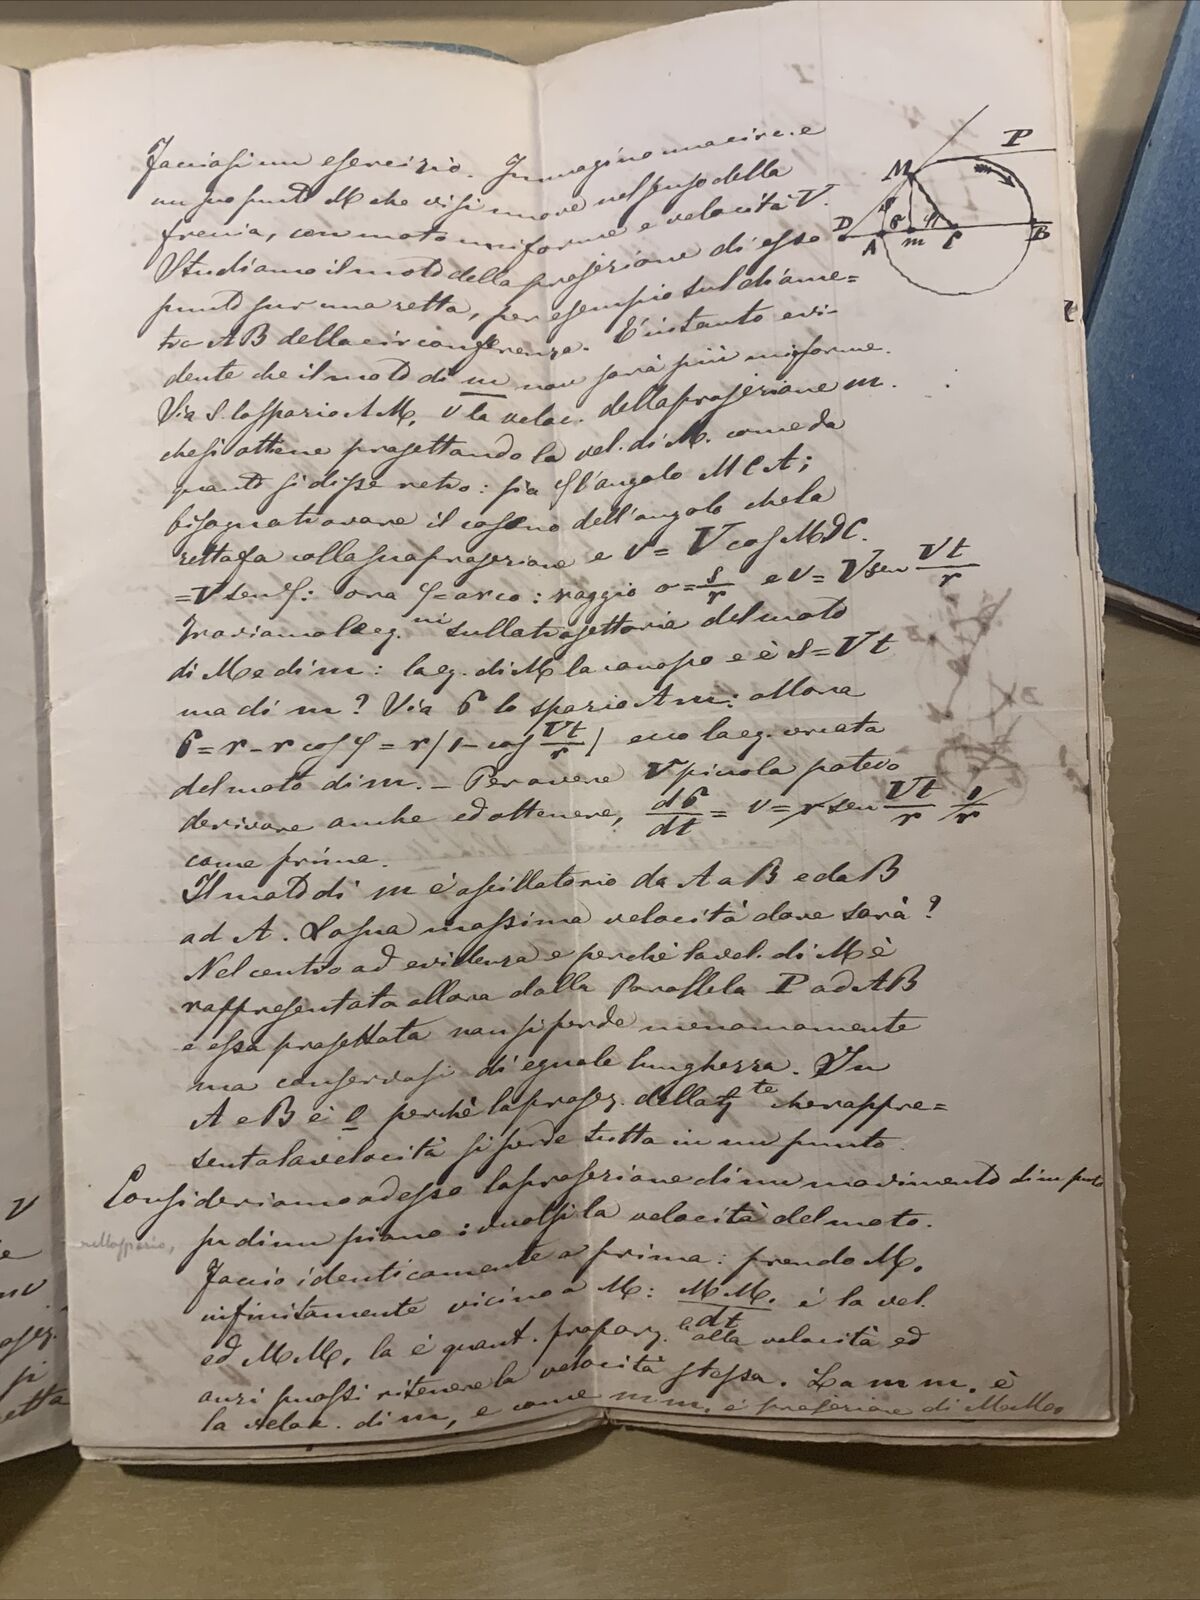 Facciasi un esercizio. Immagino una circ. e
un suo punto M che vi si muove nel senso della
freccia, con moto uniforme e velocità V.
Studiamo il moto della projezione di esso
punto sur una retta, per esempio sul diame=
tro AB della circonferenza. È intanto evi-
dente che il moto di m non sarà più uniforme.
Sia s lo spazio AM, v la veloc. della projezione m.
che si ottiene projettando la vel. di M. come da
quanto si disse retro: sia φ l'angolo MCA;
bisogna trovare il coseno dell'angolo che la
retta fa colla sua projezione e v = V cos MDC.
= V sen φ: ora φ = arco : raggio o = s/r e v = V sen Vt/r
Troviamo le eq.ni sulla trajettoria del moto
di M e di m: la eq. di M la conosco e è s = Vt
ma di m? Sia σ lo spazio Am: allora
σ = r - r cos φ = r (1 - cos Vt/r) ecco la eq. cercata
del moto di m. - Per avere v piccola potevo
derivare anche ed ottenere, dσ/dt = v = r sen Vt/r V/r
come prima.
Il moto di m è oscillatorio da A a B e da B
ad A. La sua massima velocità dove sarà?
Nel centro ad evidenza e perchè la vel. di M è
rappresentata allora dalla Parallela P ad AB
e essa projettata non si perde menomamente
ma conservasi di eguale lunghezza. In
A e B è 0 perchè la projez. della tgte che rappre=
senta la velocità si perde tutta in un punto.
Consideriamo adesso la projezione di un movimento di un pto
nello spazio, su di un piano e vuolsi la velocità del moto.
Faccio identicamente a prima: prendo M,
infinitamente vicino a M: MM,/dt è la vel.
ed MM, la è quant. proporz.le alla velocità ed
anzi puossi ritenere la velocità stessa. La mm, è
la veloc. di m, e come mm, è projezione di MM,
M
P
D
A
s
σ
m
φ
C
B